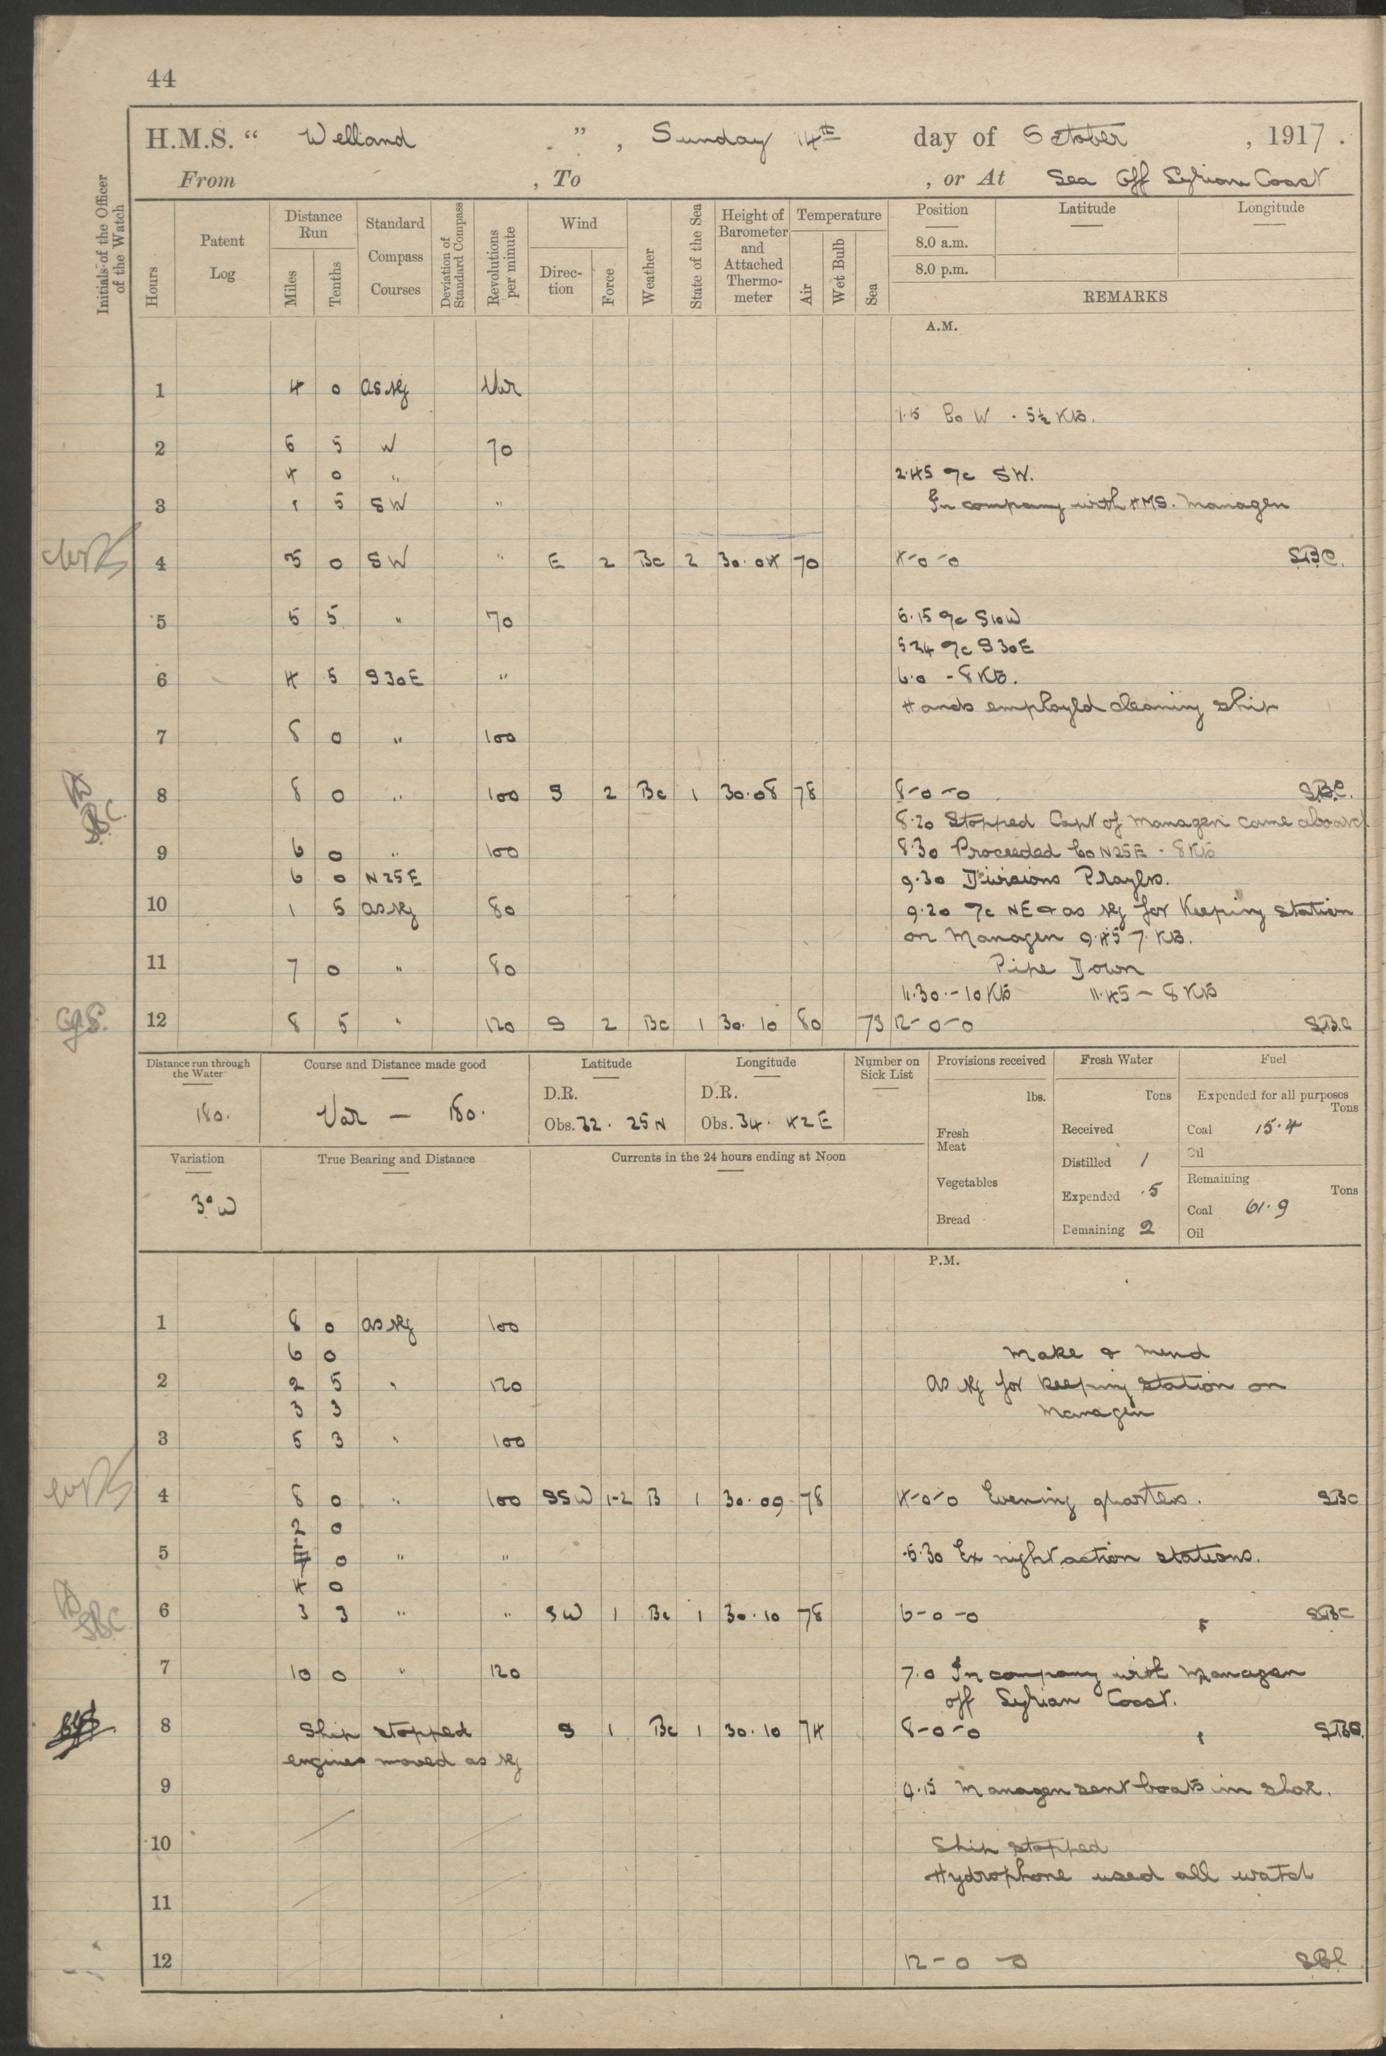 44
H.M.S. " Welland " , Sunday 14th day of October , 1917 .
From , To , or At Sea Off Syrian Coast
Initials of the Officer of the Watch
Hours
Patent Log
Distance Run
Miles
Tenths
Standard Compass Courses
Deviation of Standard Compass
Revolutions per minute
Wind
Direction
Force
Weather
State of the Sea
Height of Barometer and Attached Thermometer
Temperature
Air
Wet Bulb
Sea
Position Latitude Longitude
8.0 a.m.
8.0 p.m.
REMARKS
A.M.
1 4 0 as req Var
1.15 Co W . 5½ Kts.
2 6 5 W 70
4 0 " 2.45 a/c SW.
3 1 5 SW " In company with HMS. Managem
4 5 0 SW " E 2 Bc 2 30.04 70 4-0-0 SBC.
5 6 5 " 70 5.15 a/c S10W
5 34 a/c S30E
6 4 5 S30E " 6.0 - 8 Kts.
Hands employed cleaning ship
7 8 0 " 100
8 8 0 " 100 S 2 Bc 1 30.08 78 8-0-0 SBC.
8.20 Stopped Capt of Managem came aboard
9 6 0 " 100 8.30 Proceeded Co N25E . 8 Kts
6 0 N25E 9.30 Divisions Prayers.
10 1 5 as req 80 9.20 a/c NE & as req for Keeping station
on Managem 9.45 7. Kts.
11 7 0 " 80 Pipe Down
11.30 - 10 Kts 11.45 - 8 Kts
12 8 5 " 120 S 2 Bc 1 30.10 80 73 12-0-0 SBC
Distance run through the Water
180.
Course and Distance made good
Var - 180.
Latitude
D.R.
Obs. 32. 25 N
Longitude
D.R.
Obs. 34. 42 E
Number on Sick List
Provisions received
lbs.
Fresh Meat
Vegetables
Bread
Fresh Water
Tons
Received
Distilled 1
Expended .5
Remaining 2
Fuel
Expended for all purposes
Tons
Coal 15.4
Oil
Remaining
Tons
Coal 61.9
Oil
Variation
3° W
True Bearing and Distance
Currents in the 24 hours ending at Noon
P.M.
1 8 0 as req 100
6 0 Make & mend
2 2 5 " 120 as req for keeping station on
3 3 Managem
3 5 3 " 100
4 8 0 " 100 SSW 1-2 B 1 30.09 78 4-0-0 Evening quarters. SBC
2 0
5 0 " " 5.30 Ex night action stations.
4 0
6 3 3 " " SW 1 Bc 1 30.10 78 6-0-0 SBC
7 10 0 " 120 7.0 In company with Managem
off Syrian Coast.
8 Ship stopped S 1 Bc 1 30.10 74 8-0-0 SBC
engines moved as req
9 9.15 Managem sent boats in shore.
10 Ship stopped
Hydrophone used all watch
11
12 12-0-0 SBC